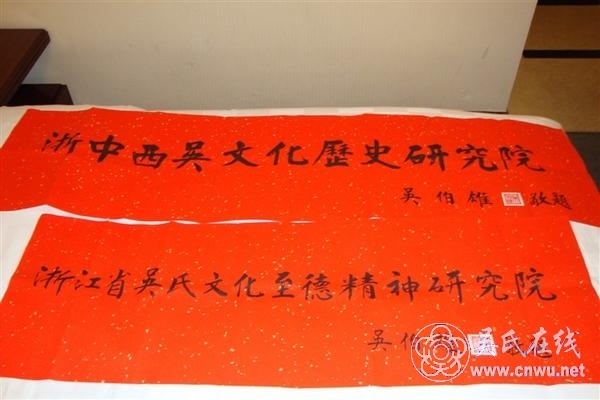 浙中西吳文化歷史研究院
吳伯雄 敬題
浙江省吳氏文化至德精神研究院
吳伯
吴氏在线
www.cnwu.net